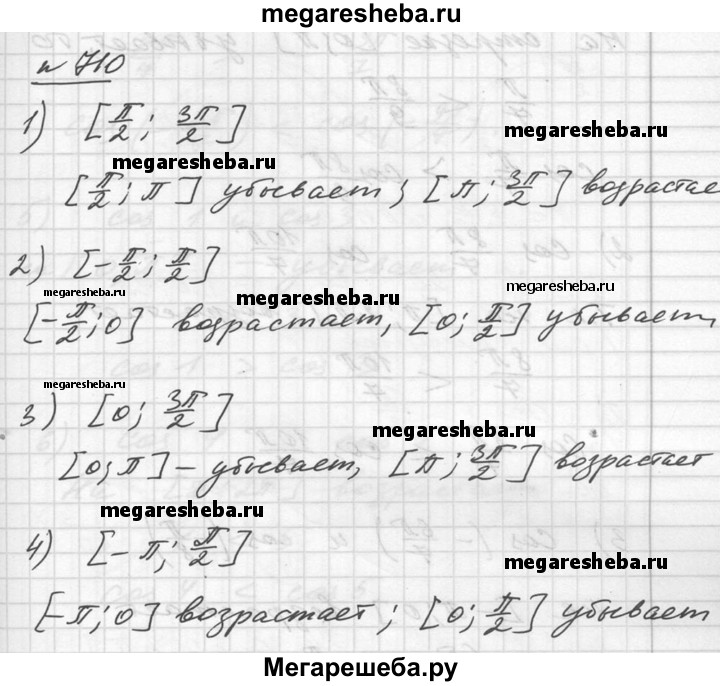 megaresheba.ru
n 710
1) [π/2; 3π/2]
megaresheba.ru
megaresheba.ru
[π/2; π] убывает; [π; 3π/2] возрастае
2) [-π/2; π/2]
megaresheba.ru
megaresheba.ru
megaresheba.ru
[-π/2; 0] возрастает, [0; π/2] убывает,
megaresheba.ru
3) [0; 3π/2]
megaresheba.ru
[0; π] – убывает, [π; 3π/2] возрастает
megaresheba.ru
4) [-π; π/2]
megaresheba.ru
[-π; 0] возрастает; [0; π/2] убывает
Мегарешеба.ру